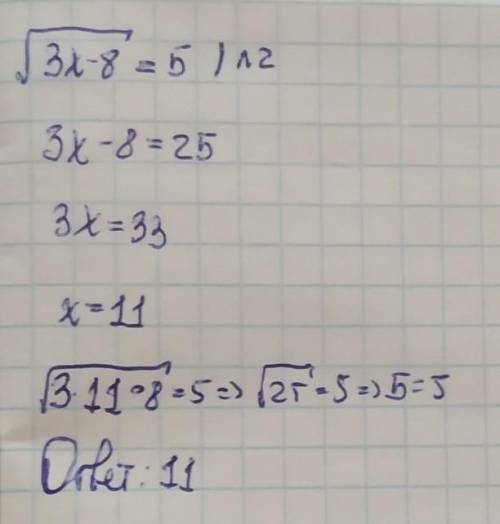 √3x-8 = 5 )^2
3x-8=25
3x=33
x=11
√3·11-8=5=>√25=5=>5=5
Ответ: 11